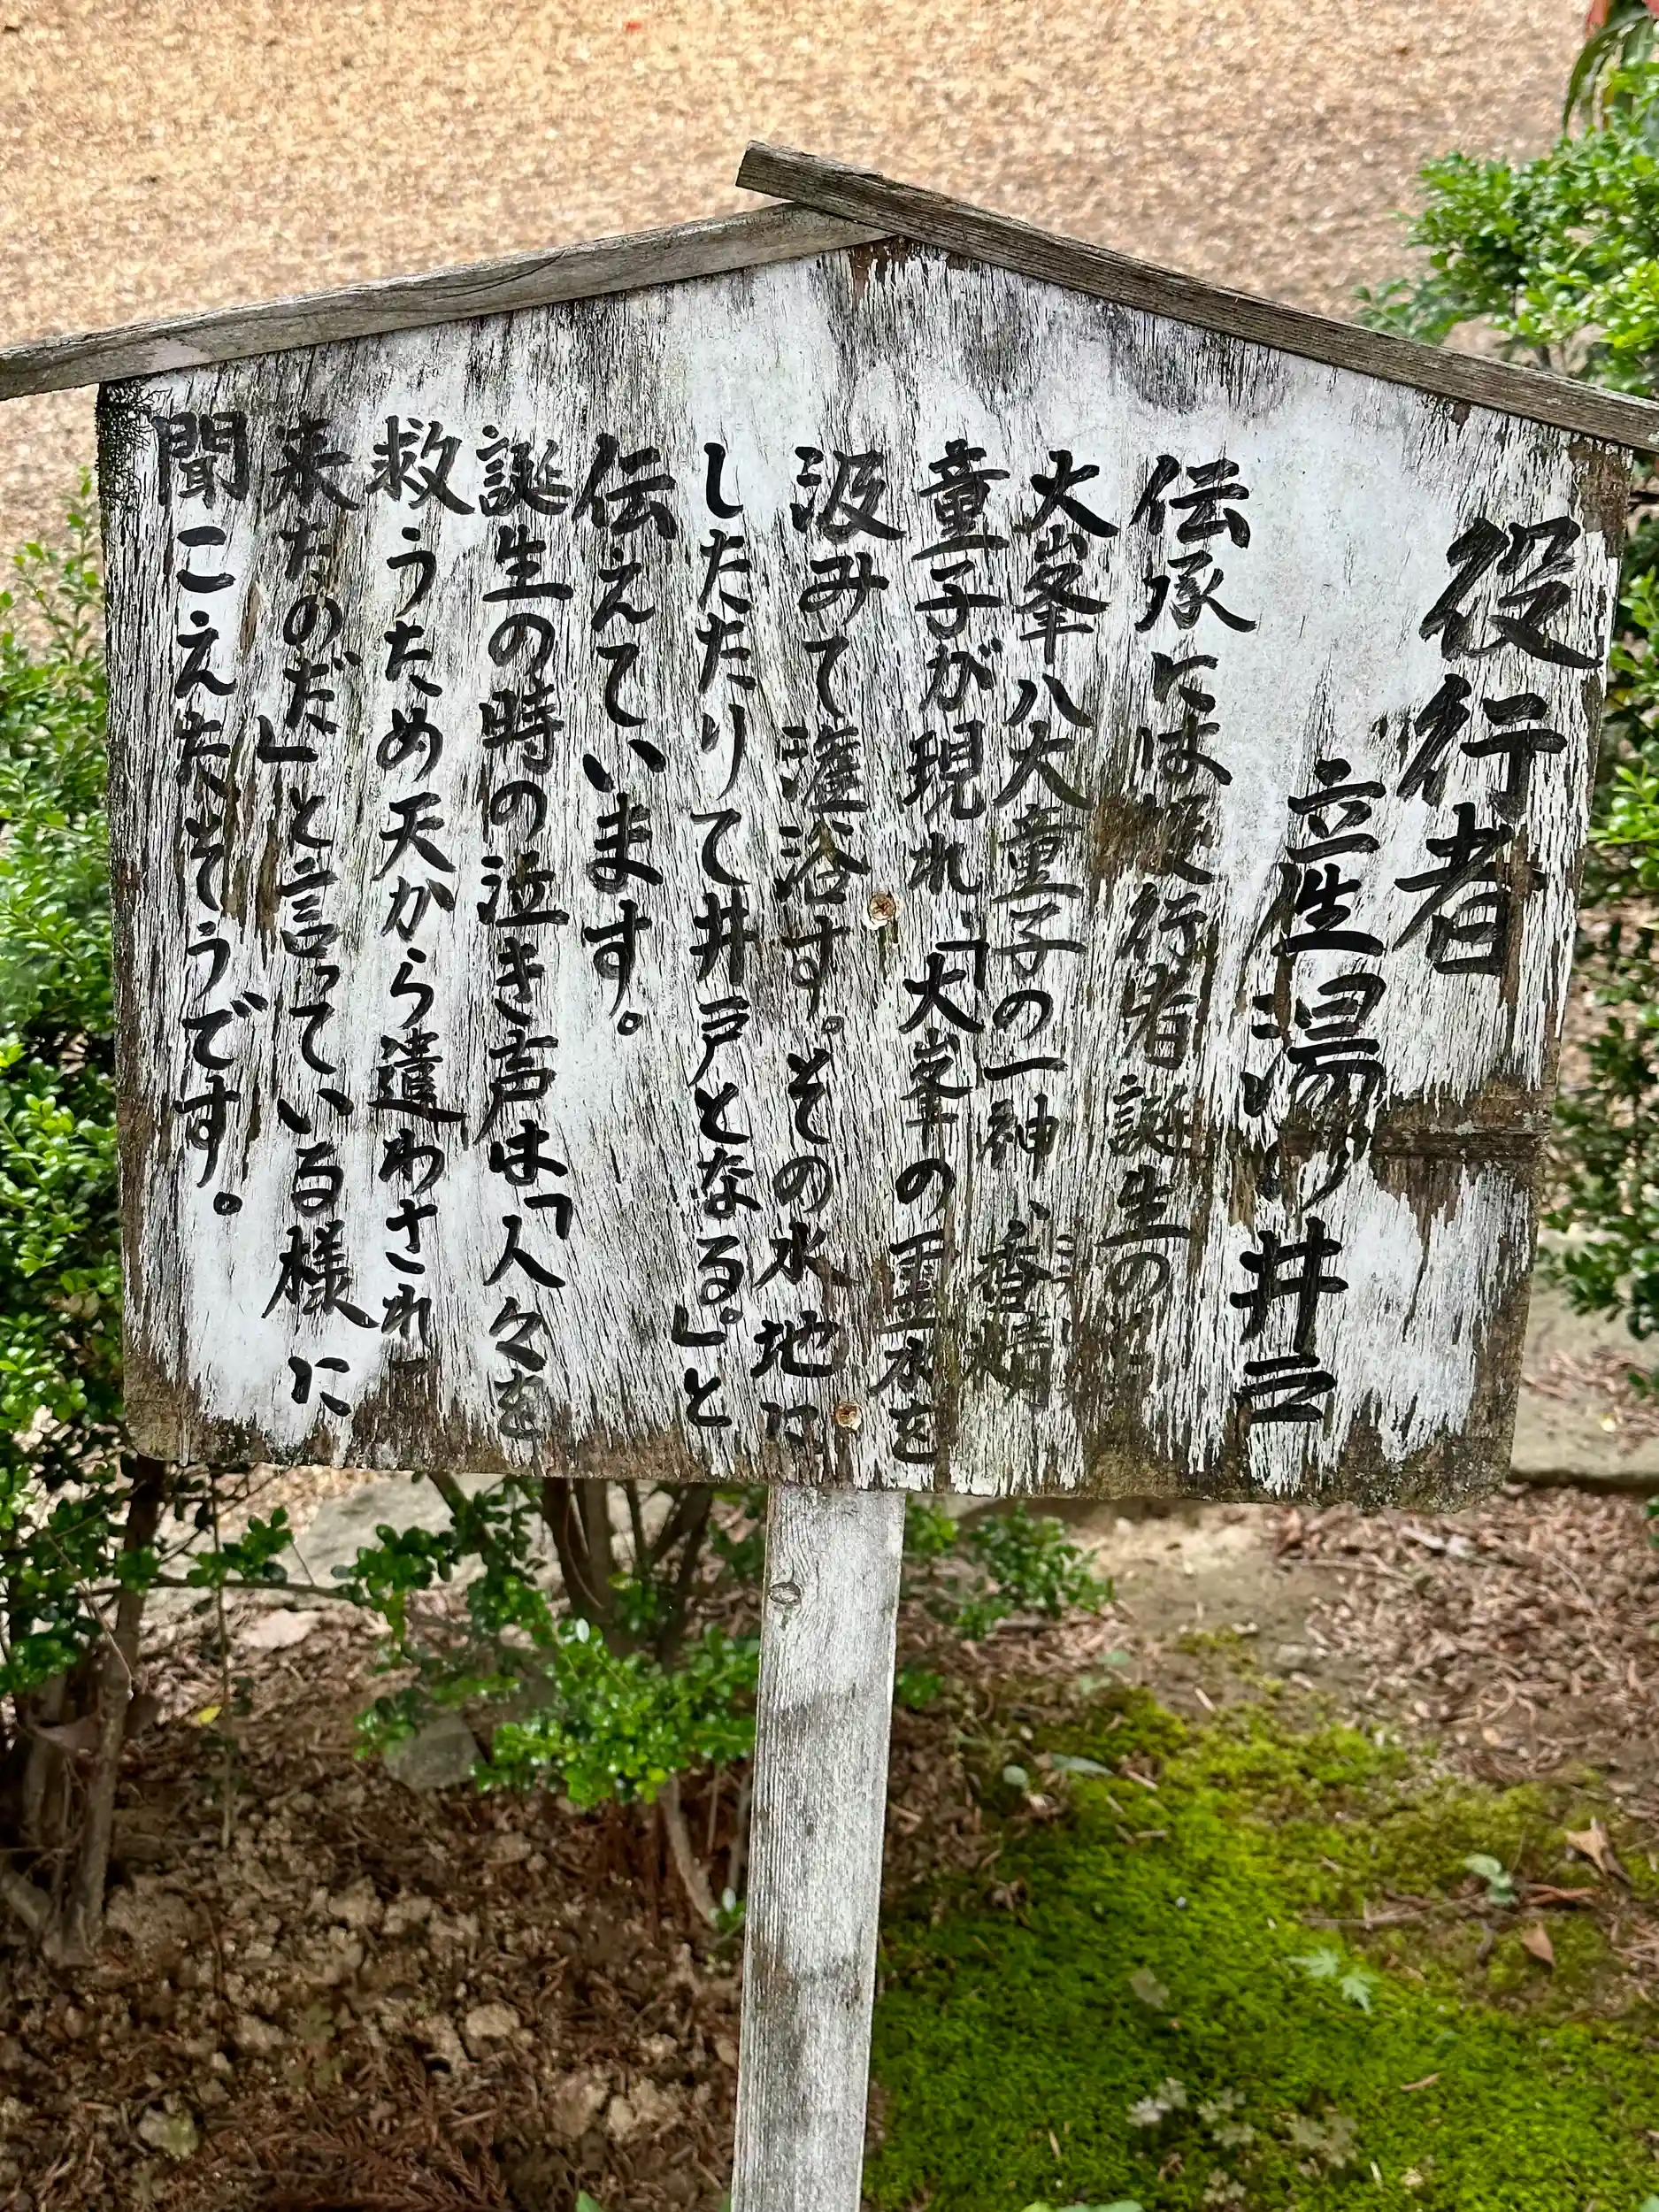 役行者
産湯の井戸
伝承には役行者誕生の時
大峯八大童子の一神、香精
童子が現れ、「大峯の霊水を
汲みて灌浴す。その水地に
したたりて井戸となる。」と
伝えています。
誕生の時の泣き声は「人々を
救うため天から遣わされて
来たのだ」と言っている様に
聞こえたそうです。